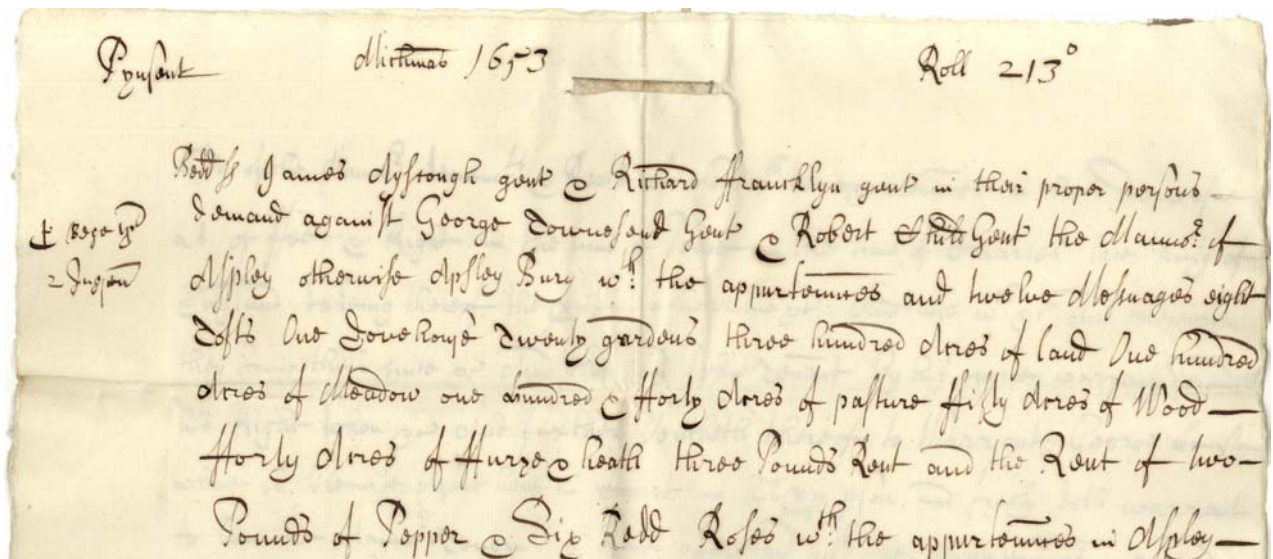 Pynsent Michmas 1653 Roll 213o
Bedd ss James Ayscough gent & Richard Francklyn gent in their proper persons
demand against George Townesend Gent & Robert Child Gent the Mannor of
Aspley otherwise Apsley Bury wth the appurtennces and twelve Mesuages eight
Tofts One Dovehouse Twenty gardens three hundred Acres of land One hundred
Acres of Meadow one hundred & fforty Acres of pasture ffifty Acres of Wood
fforty Acres of ffurze & heath three Pounds Rent and the Rent of two
Pounds of Pepper & Six Redd Roses wth the appurtennces in Aspley